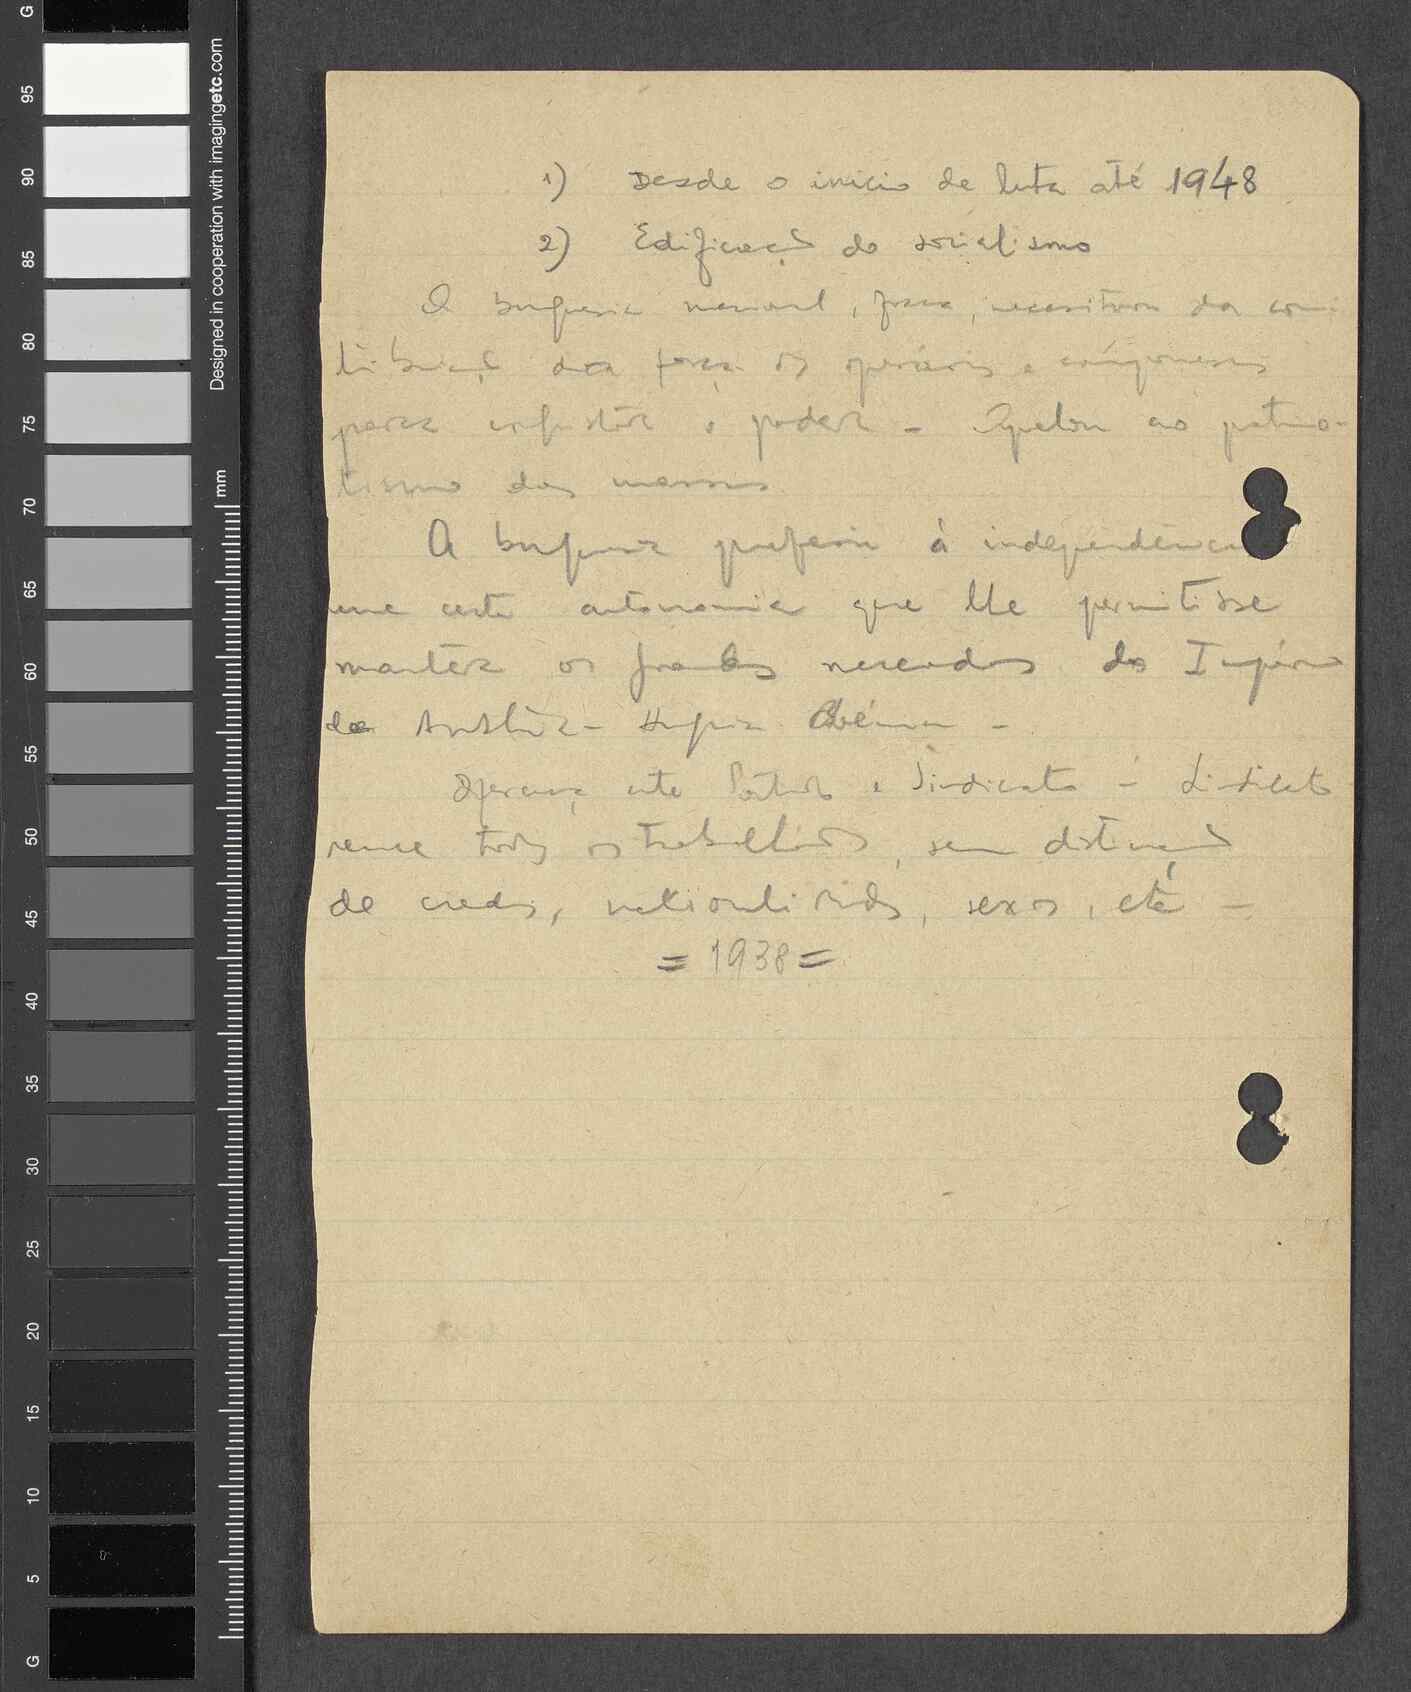 1) Desde o inicio de luta até 1948
2) Edificação do socialismo
A burguesia nacional, fraca, necessitava da con-
tribuição das forças os operários e camponeses
para conquistar o poder - Apelou ao patrio-
tismo das massas
A burguesia preferia à independência
uma certa autonomia que lhe permitisse
manter os grandes mercados do Império
da Austria-Hungria
Diferença ente Partido e Sindicato - Sindicato
reune todos os trabalhadores, sem distinção
de credos, nationalidades, sexos, etc -
= 1938 =
G
95
90
85
80
75
70
65
60
55
50
45
40
35
30
25
20
15
10
5
G
Designed in cooperation with imagingetc.com
mm